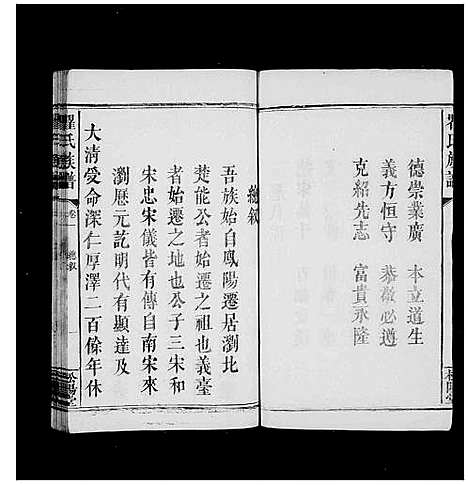 瞿氏族譜
德崇業廣 本立道生
義方恒守 恭敬必遵
克紹先志 富貴永隆
總敘
吾族始自鳳陽遷居瀏北
焚能公者始遷之祖也義臺
者始遷之地也公子三宋和
宋忠宋儀皆有傳自南宋來
瀏歷元訖明代有顯達及
大清受命深仁厚澤二百餘年休
瞿氏族譜
卷一 總叙
松陽堂